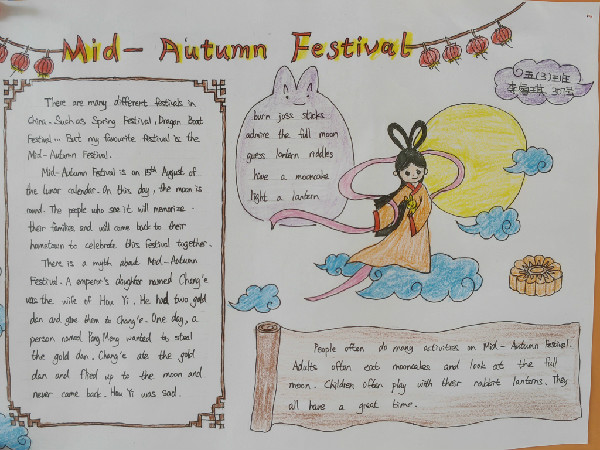 Mid-Autumn Festival
There are many different festivals in
China. Such as Spring Festival, Dragon Boat
Festival... But my favourite festival is the
Mid-Autumn Festival.
Mid-Autumn Festival is on 15th August of
the lunar calendar. On this day, the moon is
round. The people who see it will memorize
their families and will come back to their
hometown to celebrate this festival together.
There is a myth about Mid-Autumn
Festival. A emperor's daughter named Chang'e
was the wife of Hou Yi. He had two gold
dan and gave them to Chang'e. One day, a
person named Pang Meng wanted to steal
the gold dan. Chang'e ate the gold
dan and flied up to the moon and
never came back. Hou Yi was sad.
burn joss sticks
admire the full moon
guess lantern riddles
have a mooncake
light a lantern
五(3)班
People often do many activities on Mid-Autumn Festival.
Adults often eat mooncakes and look at the full
moon. Children often play with their rabbit lanterns. They
all have a great time.